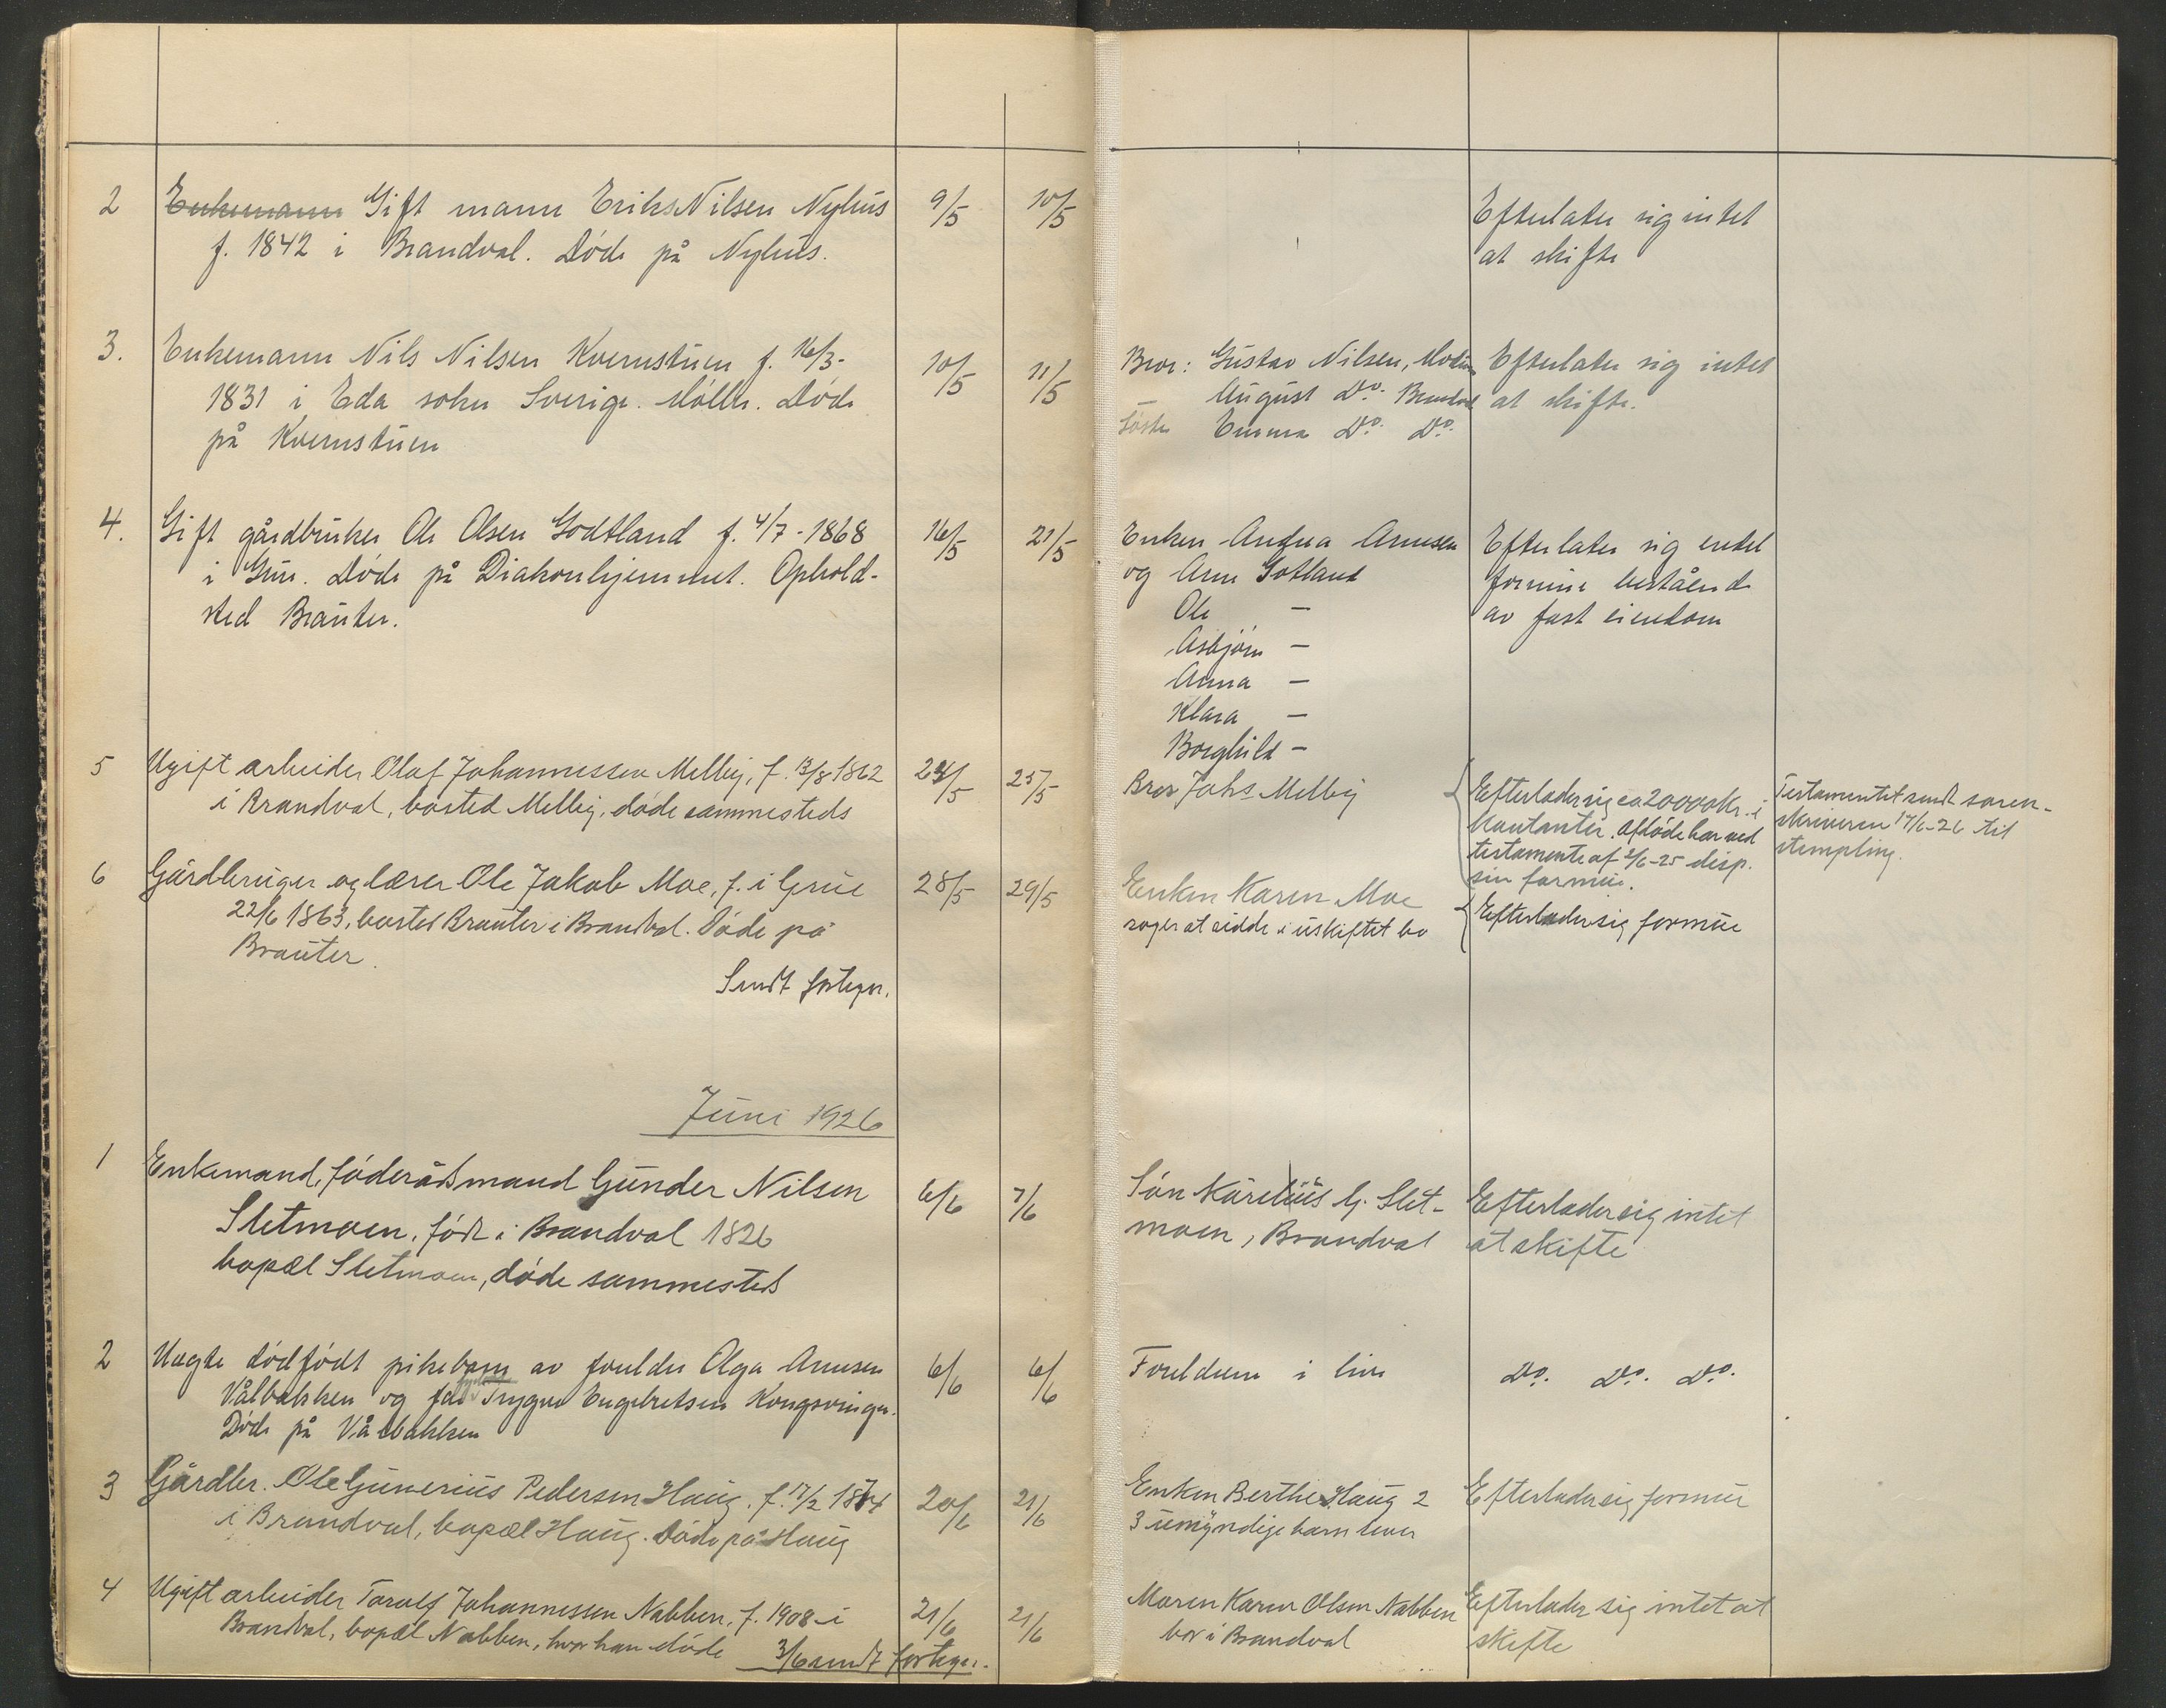 2 ~~Enkemann~~ Gift mann Eriks Nilsen Nyhus 9/5 10/5 Efterlater sig intet
f. 1842 i Brandval. Døde på Nyhus. at skifte
3. Enkemann Nils Nilsen Kvernstuen f. 16/3- 10/5 11/5 Bror: Gustav Nilsen, Efterlater sig intet
1831 i Eda sokn Sverige. Møller. Døde August Do. Brandval at skifte.
på Kvernstuen Søster Emma Do. Do.
4. Gift gårdbruker Ole Olsen Godtland f. 4/7-1868 16/5 21/5 Enken Andrea Arnesen Efterlater sig endel
i Grue. Døde på Diakonhjemmet. Ophold- og Arne Gotland formue bestående
sted Brauter. Ole — av fast eiendom
Asbjørn —
Anna —
Klara —
Borghild —
5 Ugift arbeider Olaf Johannessen Melby, f. 13/8 1862 24/5 25/5 Bror Johs Melby Efterlader sig ca 20000 kr. i Testamentet sendt soren-
i Brandval, bosted Melby, døde sammesteds kontanter. Afdøde har ved skriveren 17/6-26 til
testamente af 2/6-25 disp. stempling.
sin formue.
6 Gårdbruger og lærer Ole Jakob Moe, f. i Grue 28/5 29/5 Enken Karen Moe
22/6 1863, bosted Brauter i Brandval. Døde på søger at sidde i uskiftet bo Efterlader sig formue
Brauter.
Sendt fortegn.
Juni 1926
1 Enkemand, føderådsmand Gunder Nilsen 6/6 7/6 Søn Karelius G. Slet- Efterlader sig intet
Sletmoen, født i Brandval 1826 moen, Brandval at skifte
bopæl Sletmoen, døde sammesteds
2 Uegte dødfødt pikebarn av foreldre Olga Arnesen 6/6 6/6 Foreldrene i live Do. Do. Do.
Vålbakken og far Trygve Engebretsen Kongsvinger.
Døde på Vålbakken
3 Gårdbr. Ole Gunerius Pedersen Haug. f. 17/2 1874 20/6 21/6 Enken Berthe Haug 2 Efterlader sig formue
i Brandval, bopæl Haug. Døde på Haug 3 umyndige barn lever
4 Ugift arbeider Toralf Johannessen Nabben, f. 1908 i 21/6 21/6 Moren Karen Olsen Nabben Efterlader sig intet at
Brandval, bopæl Nabben, hvor han døde bor i Brandval skifte
3/6 sendt fortegn.